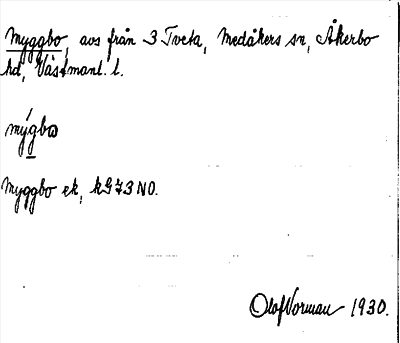 Myggbo, avs från 3 Tveta, Medåkers sn, Åkerbo
hd, Västmanl. l.
mýgbω
Myggbo ek, kG73NO.
Olof Norman 1930.